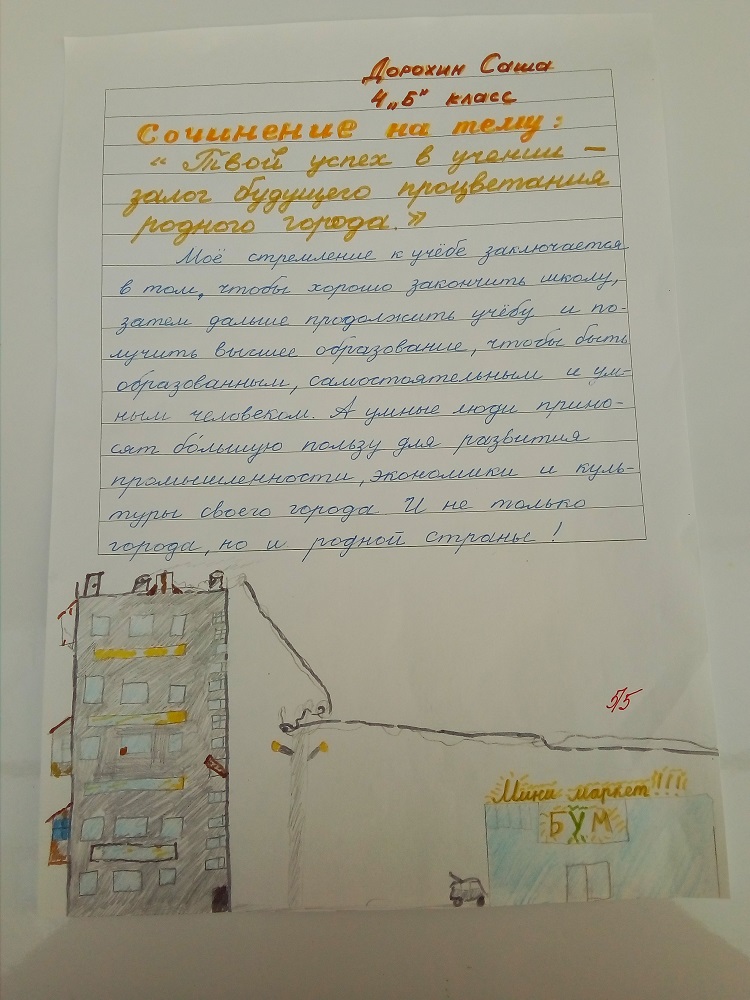 Дорохин Саша
4 „Б" класс
Сочинение на тему:
“Твой успех в учении –
залог будущего процветания
родного города.”
Моё стремление к учёбе заключается
в том, чтобы хорошо закончить школу,
затем дальше продолжить учёбу и по-
лучить высшее образование, чтобы быть
образованным, самостоятельным и ум-
ным человеком. А умные люди прино-
сят бо́льшую пользу для развития
промышленности, экономики и куль-
туры своего города И не только
города, но и родной страны!
5/5
Мини маркет!!!
БУМ